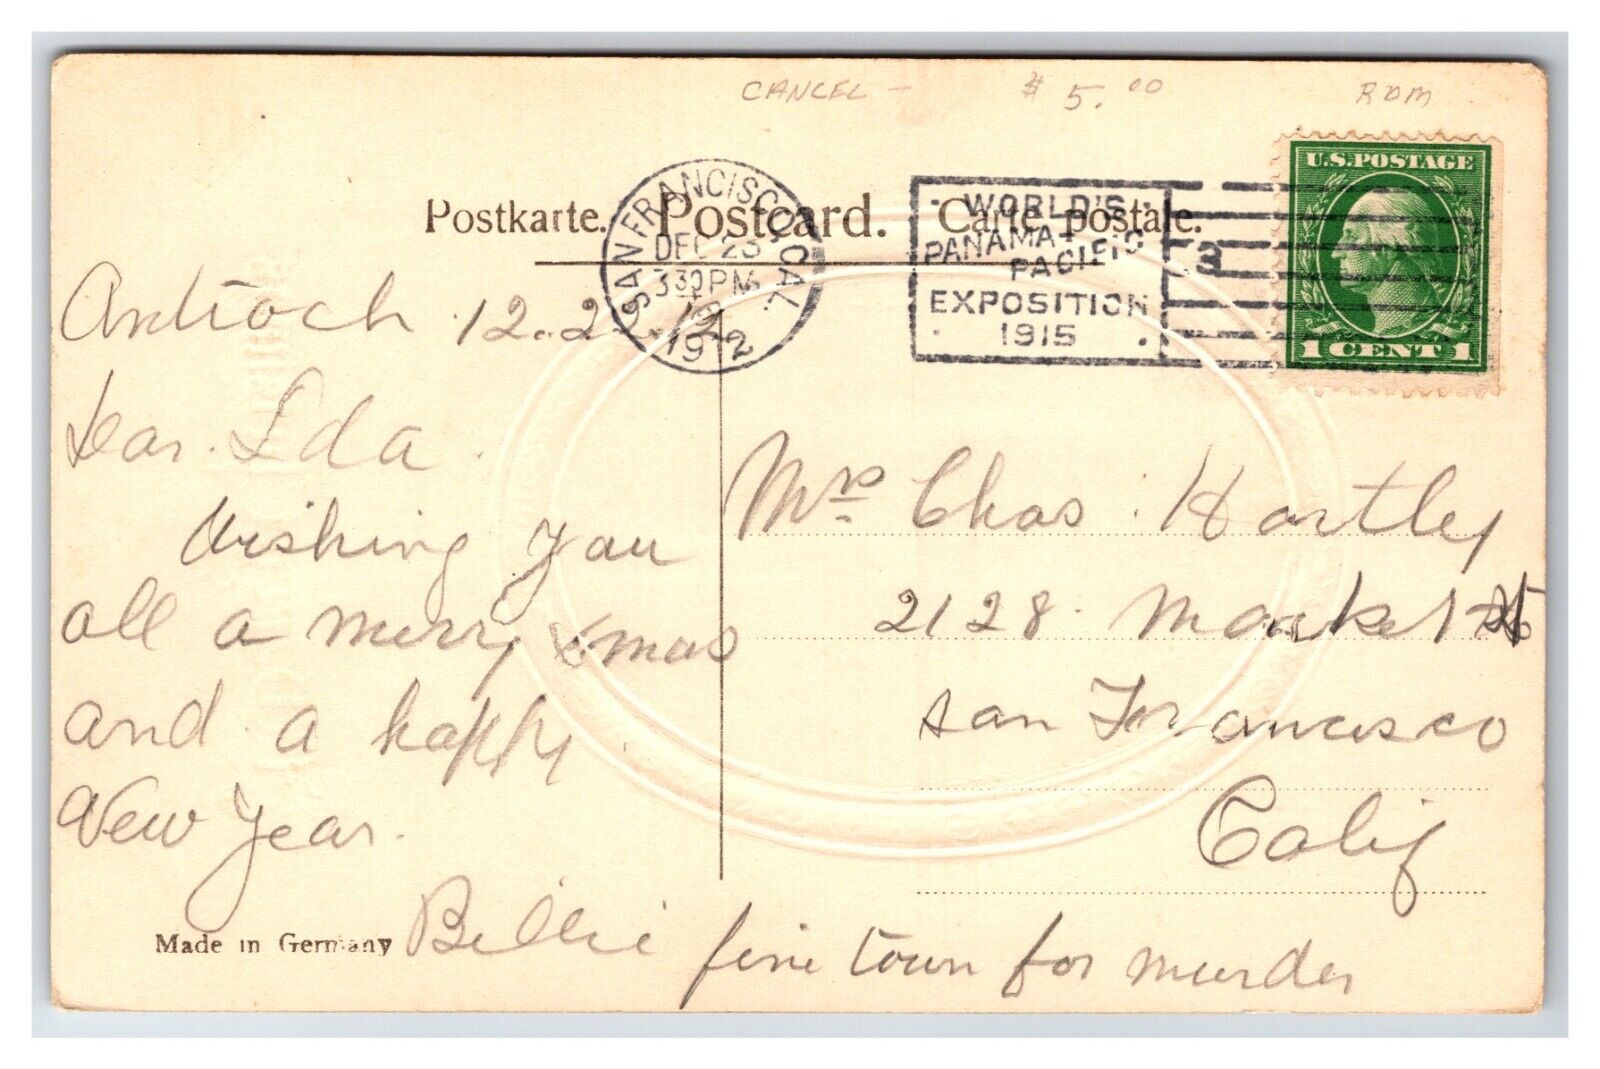 CANCEL - $ 5.00 RDM
U.S.POSTAGE
1 CENT 1
Postkarte. Postcard. Carte postale.
SAN FRANCISCO, CAL.
DEC 23
3 30 PM
1912
WORLD'S
PANAMA-
PACIFIC
EXPOSITION
1915
3
Antioch 12.2
Dear Ida
Wishing you
all a merry Xmas
and a happy
New Year.
Billie
fine town for murder
Mrs Chas. Hartley
2128 Market St
San Francisco
Calif
Made in Germany